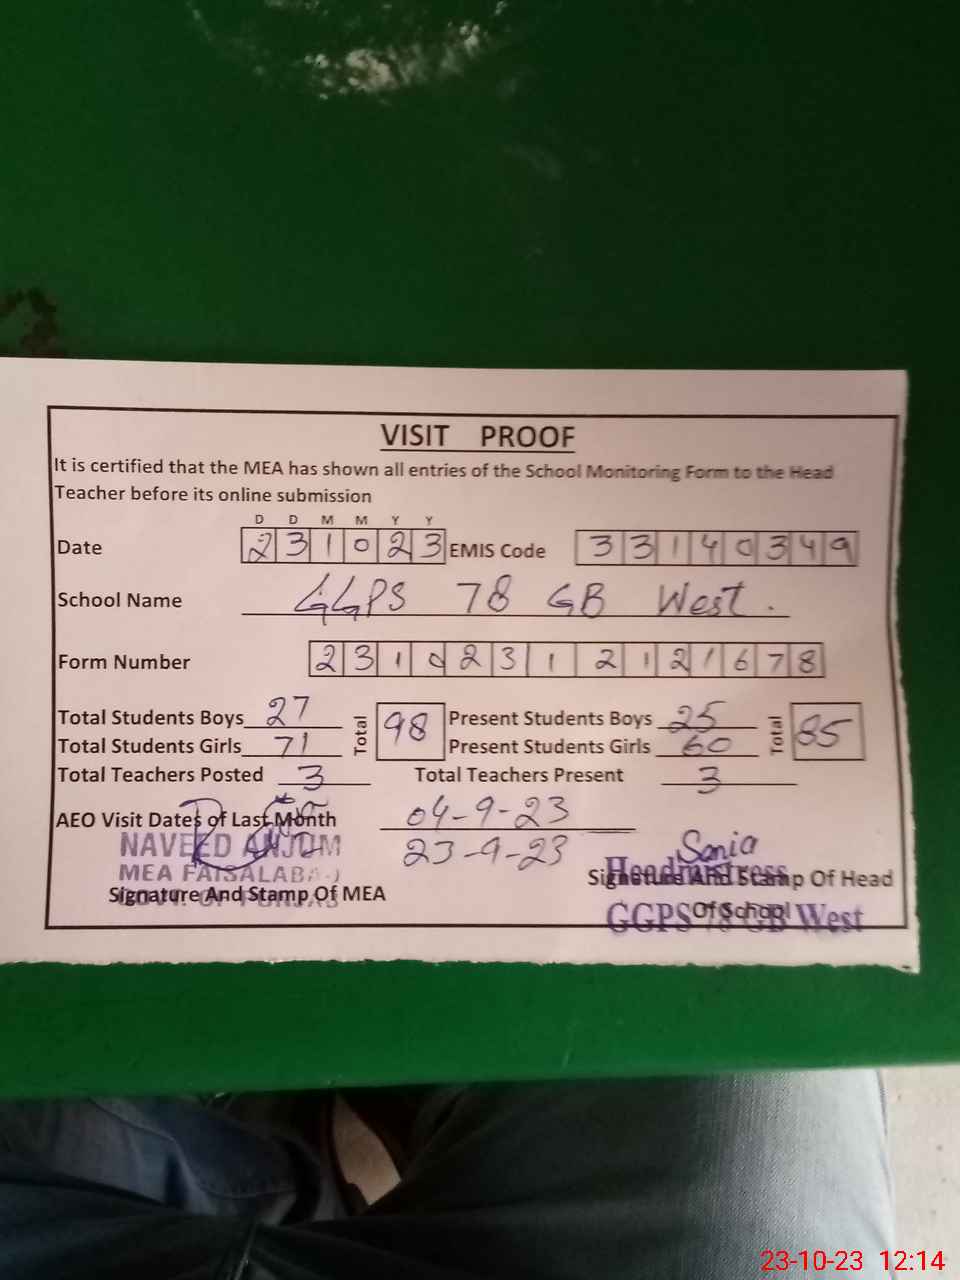 VISIT PROOF
It is certified that the MEA has shown all entries of the School Monitoring Form to the Head
Teacher before its online submission
D D M M Y Y
Date 2 3 1 0 2 3 EMIS Code 3 3 1 4 0 3 4 9
School Name GGPS 78 GB West.
Form Number 2 3 1 0 2 3 1 2 1 2 1 6 7 8
Total Students Boys 27 Total 98 Present Students Boys 25 Total 85
Total Students Girls 71 Present Students Girls 60
Total Teachers Posted 3 Total Teachers Present 3
AEO Visit Dates of Last Month 04-9-23
23-9-23
NAVEED ANJUM
MEA FAISALABAD
GOVT. OF PUNJAB
Signature And Stamp Of MEA
Sonia
Headmistress
Signature And Stamp Of Head
Of School
GGPS 78 GB West
23-10-23 12:14